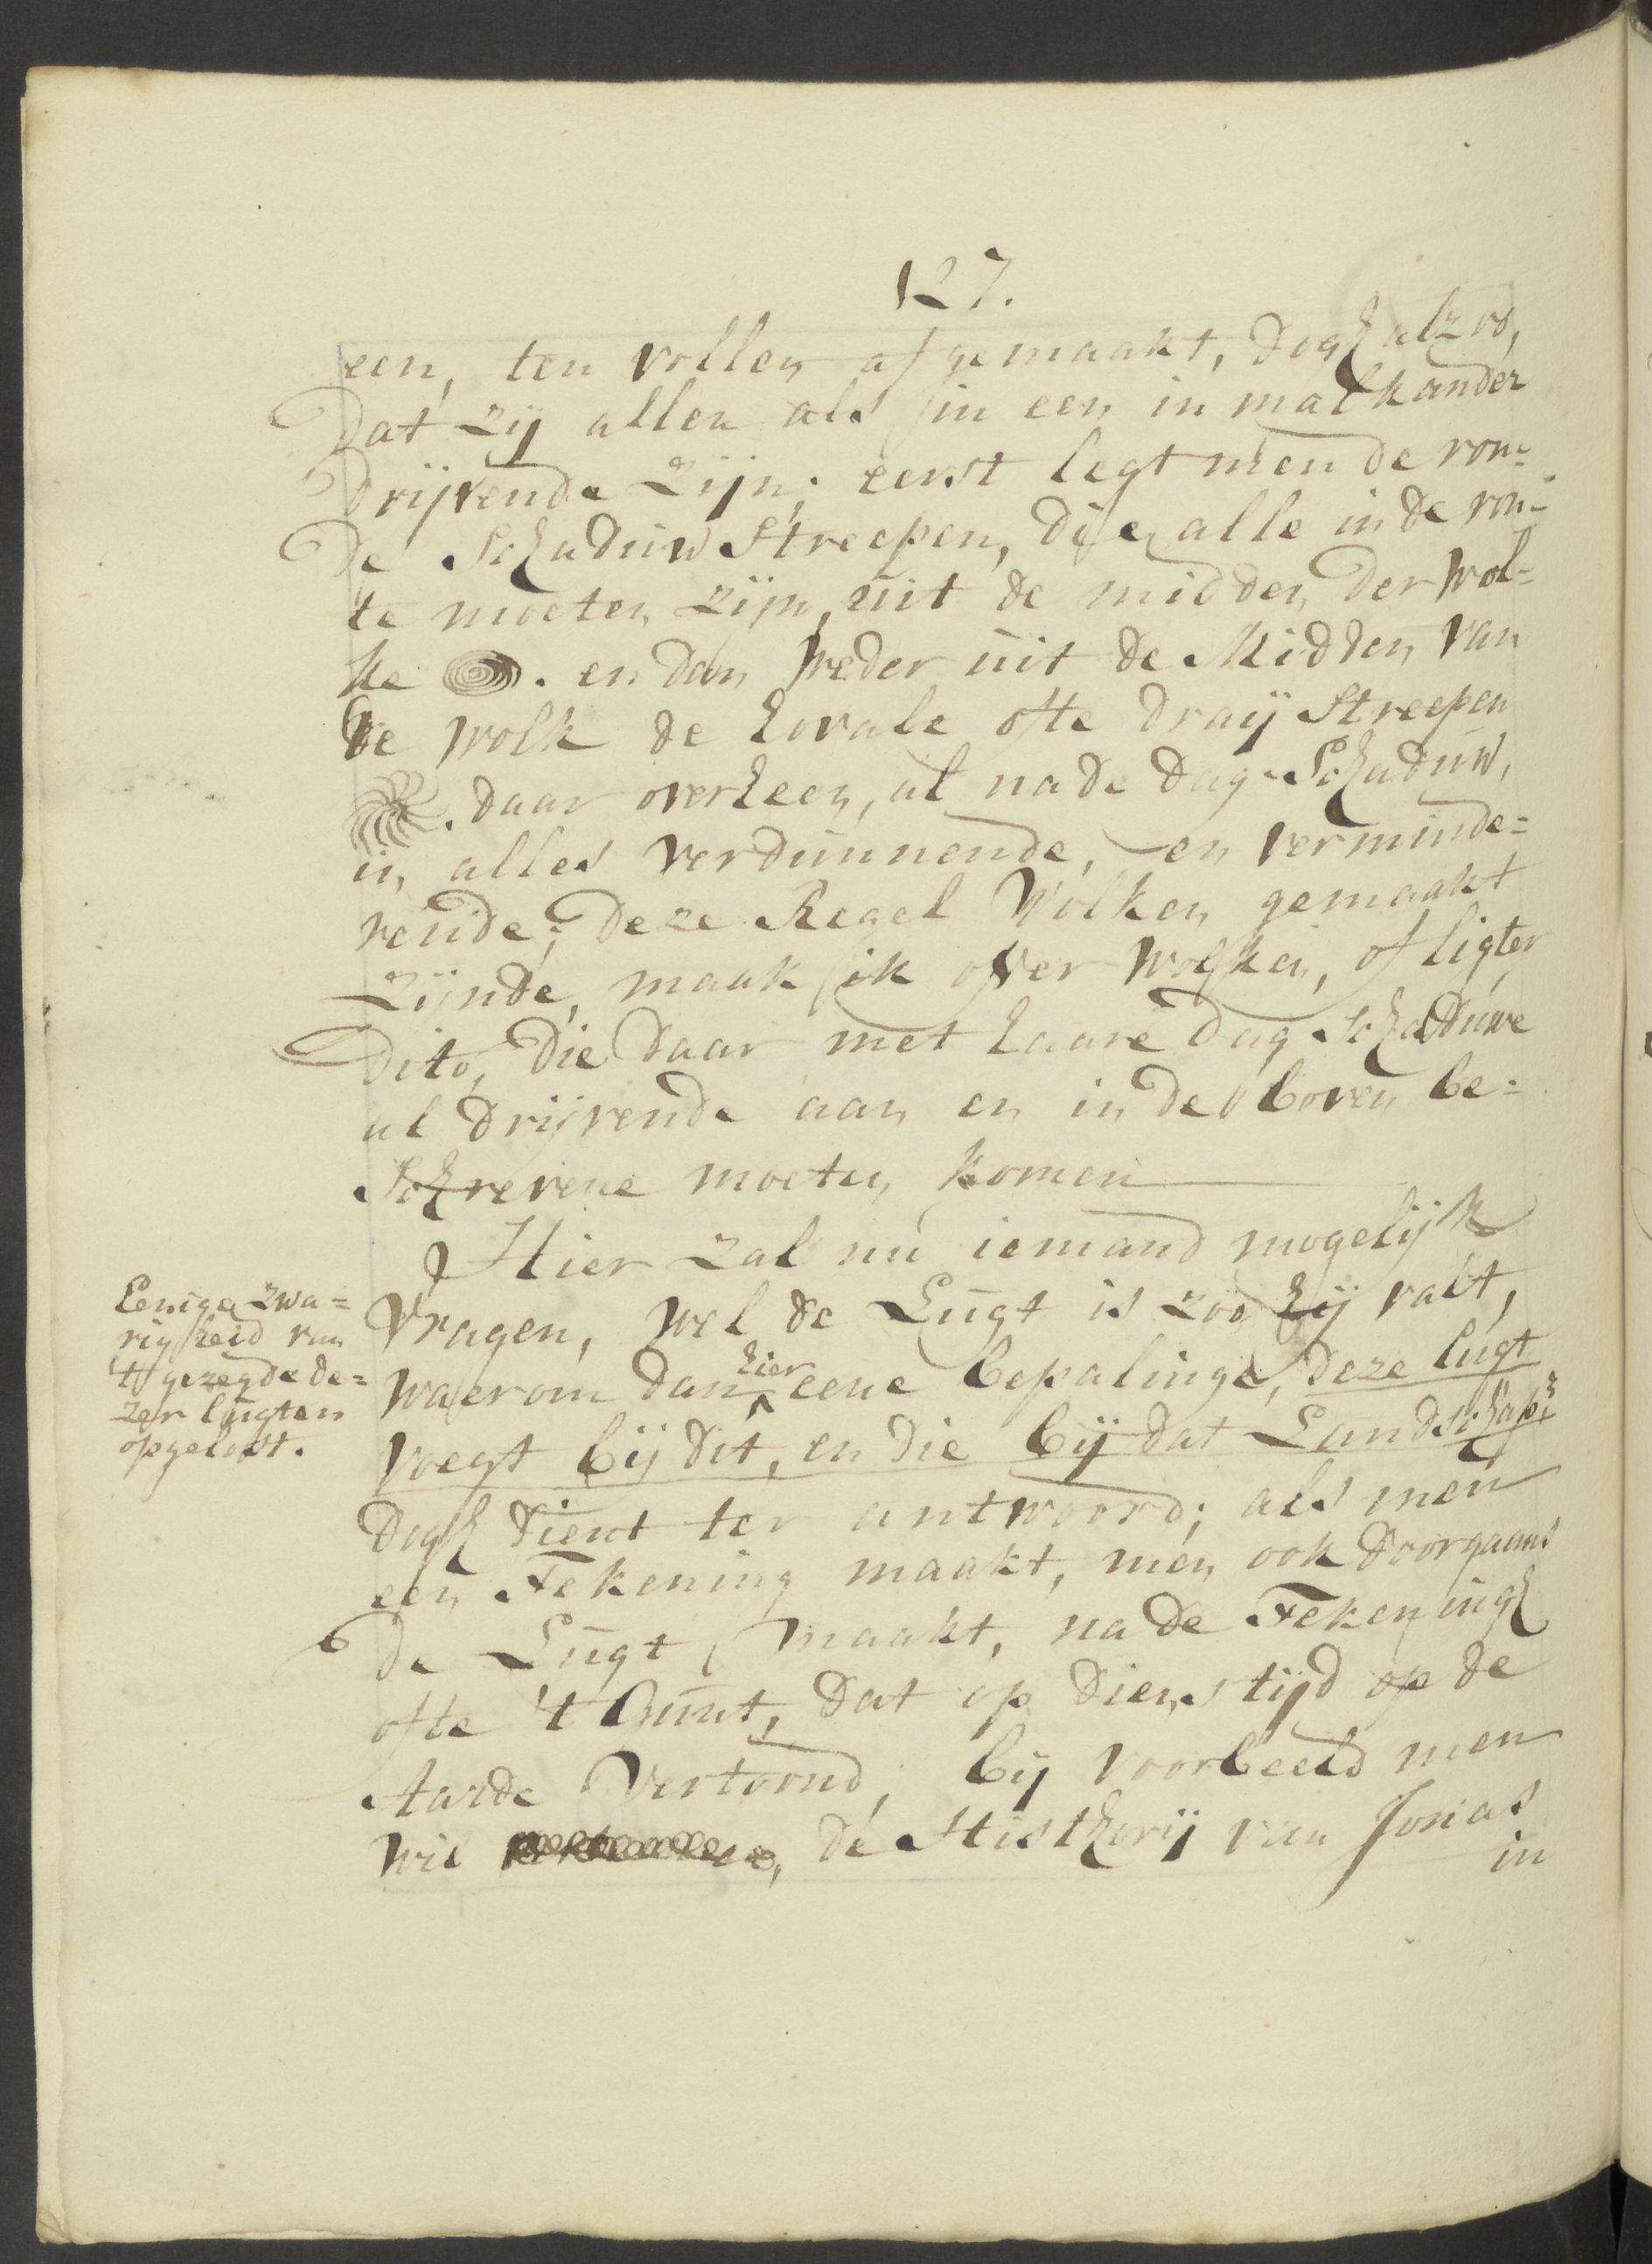 127.
een, ten vollen afgemaakt, dogh alzoo,
dat zij allen als in een in malkander
drijvende zijn; eerst legt men de ron=
de schaduw streepen, die alle in de ron=
te moeten zijn, uit de midden der wol=
ke . en dan weder uit de Midden van
de wolk de hovale ofte draij streepen
. daar overheen, al na de dag-schaduw,
in alles verdunnende, en verminde=
rende; deze Regel Wolken gemaakt
zijnde, maak ik over wolken, of ligter
dito, die daar met haare dag schaduwe
al drijvende aan en in de boven be=
schrevene moeten komen
Hier zal nu iemand mogelijk
Vragen, wel de Lugt is zoo hij valt,
waerom dan hier eene bepalinge, deze lugt
voegt bij dit, en die bij dat Landschap?
dogh dient ter antwoord; als men
een Tekening maakt, men ook doorgaans
de Lugt maakt, na de Tekeningh
ofte 't Gunt, dat op dien tijd op de
Aarde Vertoond, bij voorbeeld men
wil de Histhorij van Jonas
in
Eenige zwa=
righeid van
't gezegde de=
zer lugten
opgelost.